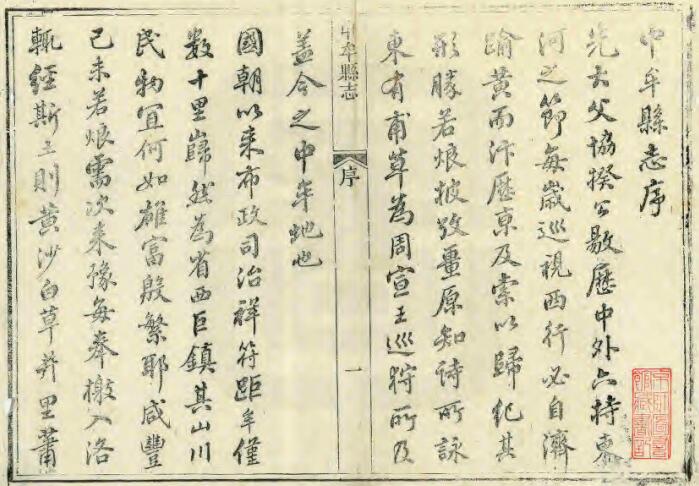 中牟縣志序
先大父協揆公敭歷中外六持東
河之節每歲巡視西行必自濟
踰黃而汴歷京及索以歸紀其
形勝若烺披攷畺原知詩所詠
東有甫草為周宣王巡狩所及
中牟縣志
序
一
蓋今之中牟地也
國朝以來布政司治祥符距牟僅
數十里巋然為省西巨鎮其山川
民物宜何如雄富殷繁耶咸豐
己未若烺需次來豫每奉檄入洛
輒經斯土則黃沙白草井里蕭